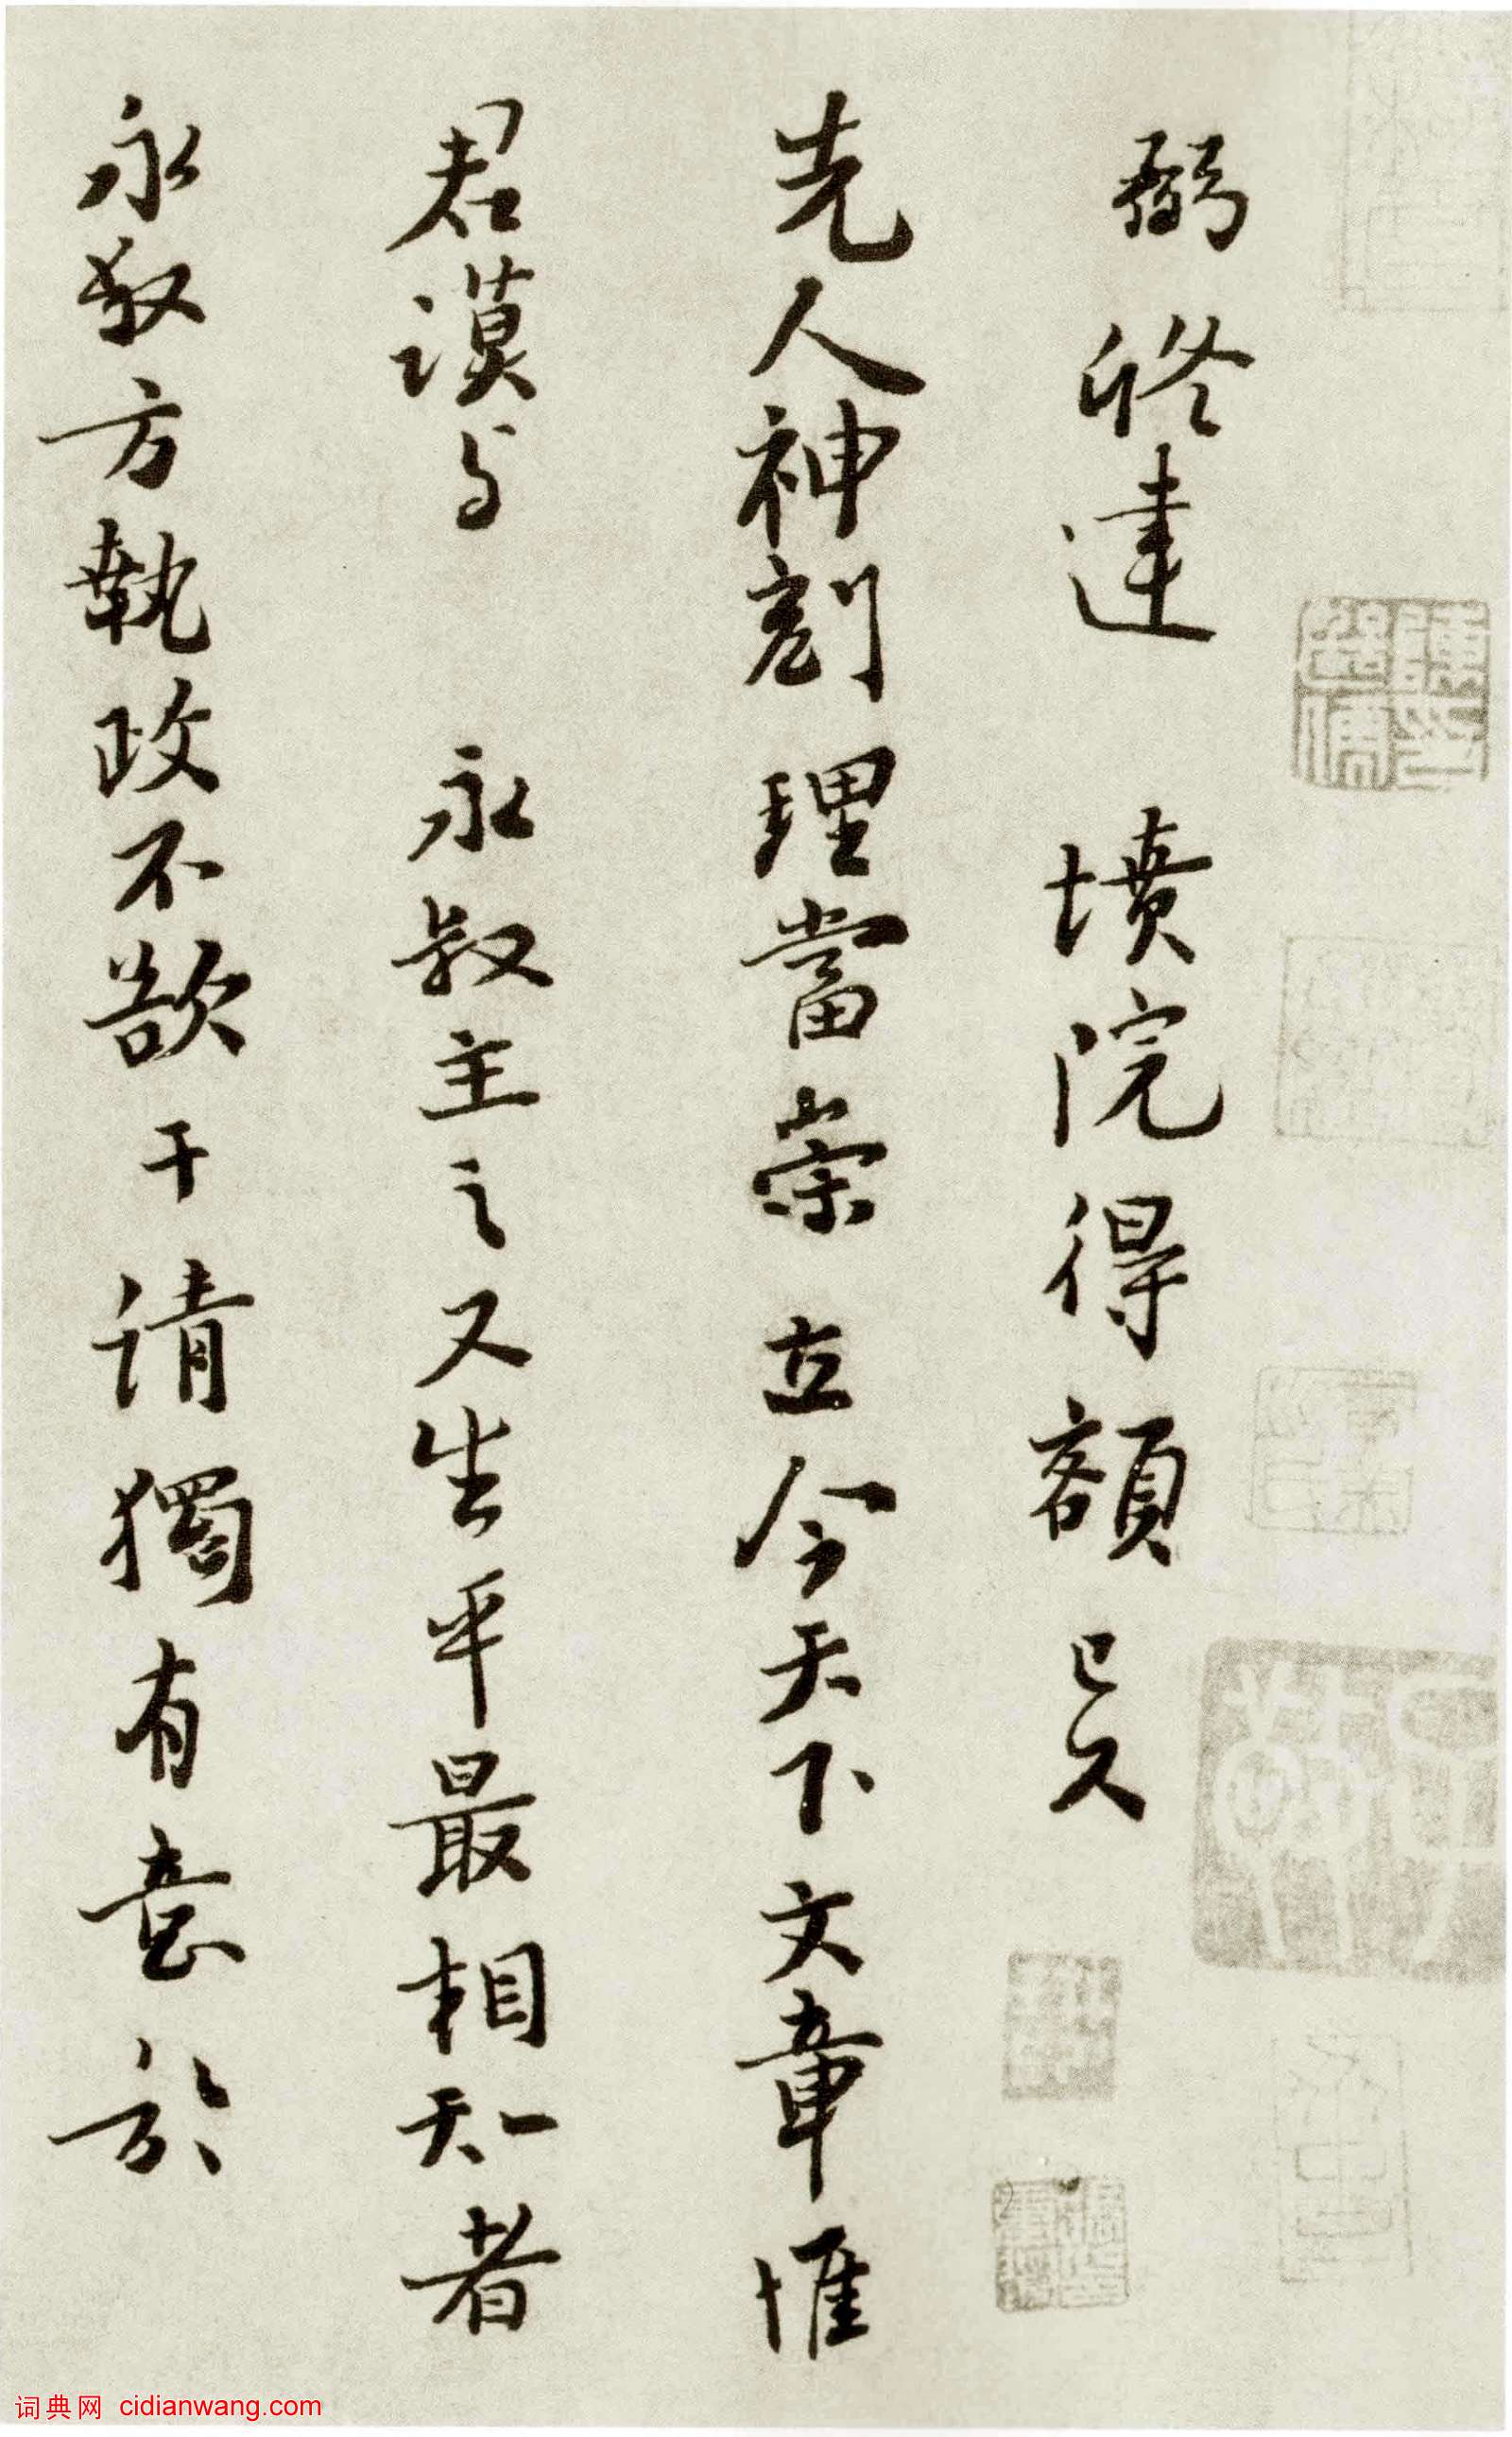 弼修建 墳院得額已久
先人神刻理當崇立今天下文章惟
君謨与 永叔主之又生平最相知者
永叔方執政不欲干請獨有意於
词典网 cidianwang.com